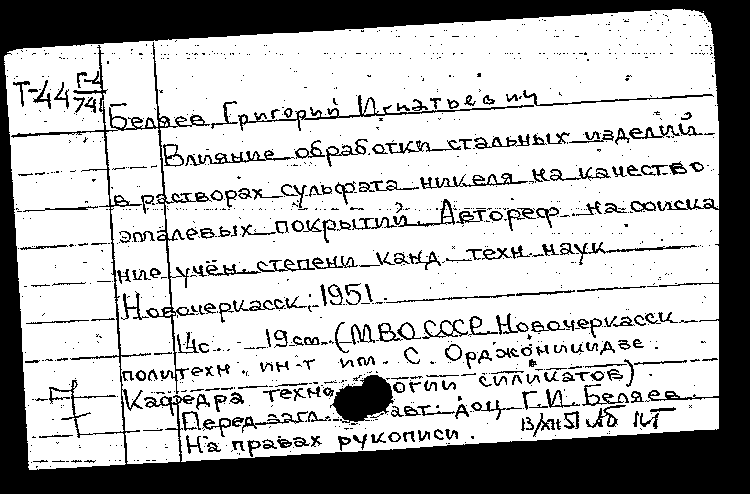 Т-44 Г-4/741
Беляев, Григорий Игнатьевич
Влияние обработки стальных изделий
в растворах сульфата никеля на качество
эмалевых покрытий. Автореф. на соиска
ние учён. степени канд. техн. наук
Новочеркасск, 1951.
14с. 19см. (МВО СССР. Новочеркасск.
политехн. ин-т им. С. Орджоникидзе.
Кафедра техно огии силикатов).
Перед загл. авт: доц Г.И. Беляев.
На правах рукописи. 13/XII 51